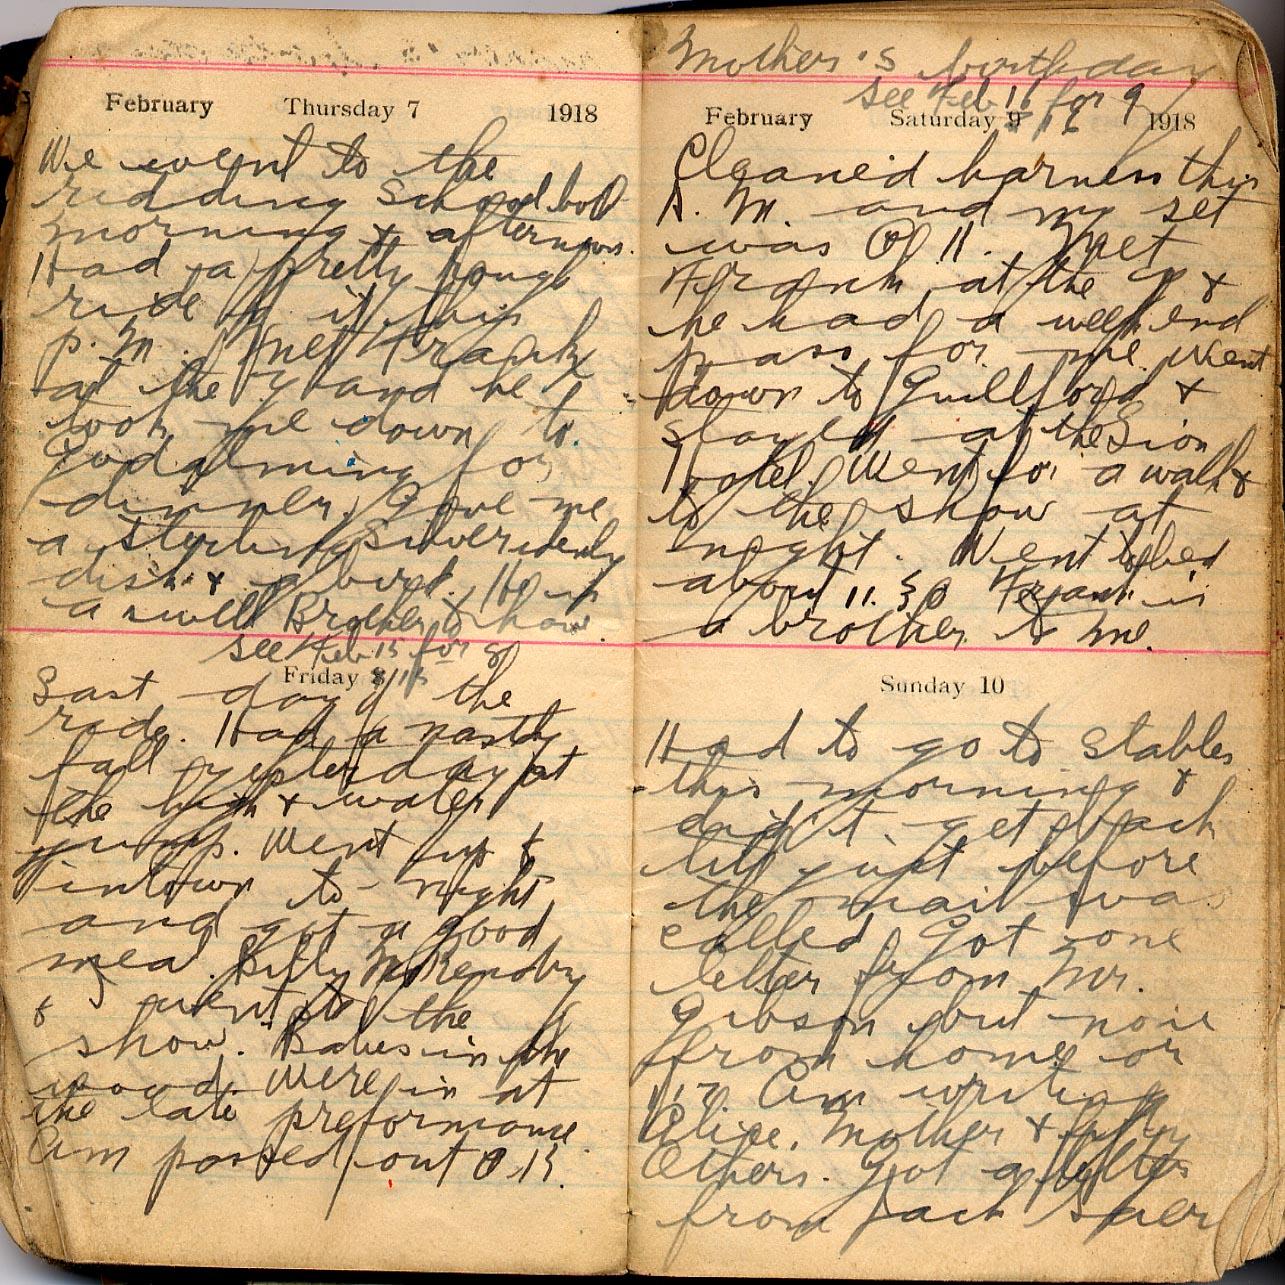 February Thursday 7 1918
We went to the
ridding School both
morning & afternoons.
Had a pretty rough
ride of it this
p.m. Met Frank
at the Y and he
took me down to
Godalming for
dinner. Gave me
a sterling Silver
dish & a He is
a swell Brother to have.
see Feb 15 for 8
Friday 8
Last day of the
ride. Had a nasty
fall yesterday at
the high & water
jump. Went up
intown to-night
and got a good
meal. Billy McKendry
& I went to the
show. Babes in the
wood. Were in at
the late preformance
Am passed out O.K.
Mother's birthday
see Feb 16 for 9
February Saturday 9 1918
Cleaned harness this
A.M. and my set
was O.K. Met
Frank at the Y &
he had a week end
pass for me. Went
down to Guillford &
stayed at the Lion
Hotel. Went for a walk &
to the show at
night. Went to bed
about 11.30 Frank is
a brother to me.
Sunday 10
Had to go to stables
this morning &
did't get back
till just before
the mail was
called Got one
letter from Mr.
Gibson but none
from home or
Am writing
Alice, Mother &
Others. Got a letter
from Jack